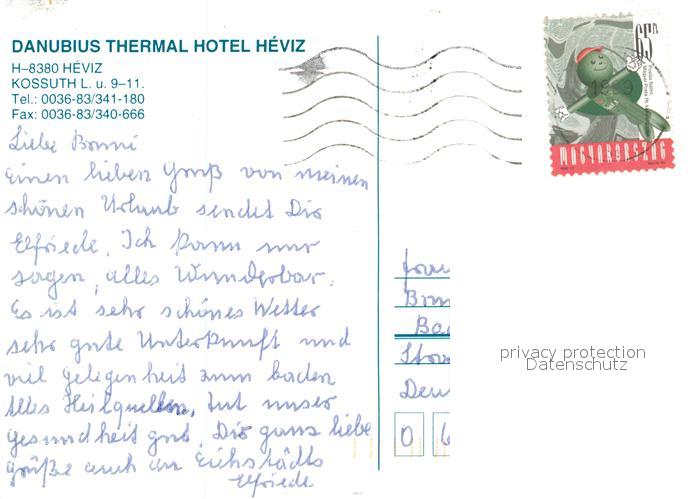 DANUBIUS THERMAL HOTEL HÉVIZ
H–8380 HÉVIZ
KOSSUTH L. u. 9–11.
Tel.: 0036-83/341-180
Fax: 0036-83/340-666
Liebe Bonni
Einen lieben Gruß von meinen
schönen Urlaub sendet Dir
Elfriede. Ich kann nur
sagen, alles Wunderbar.
Es ist sehr schönes Wetter
sehr gute Unterkunft und
viel gelegenheit zum baden
Alles Heilquellen, tut unser
gesundheit gut. Dir ganz liebe
grüße auch an Eichstädts
Elfriede
65 Ft
MAGYARORSZÁG
privacy protection
Datenschutz